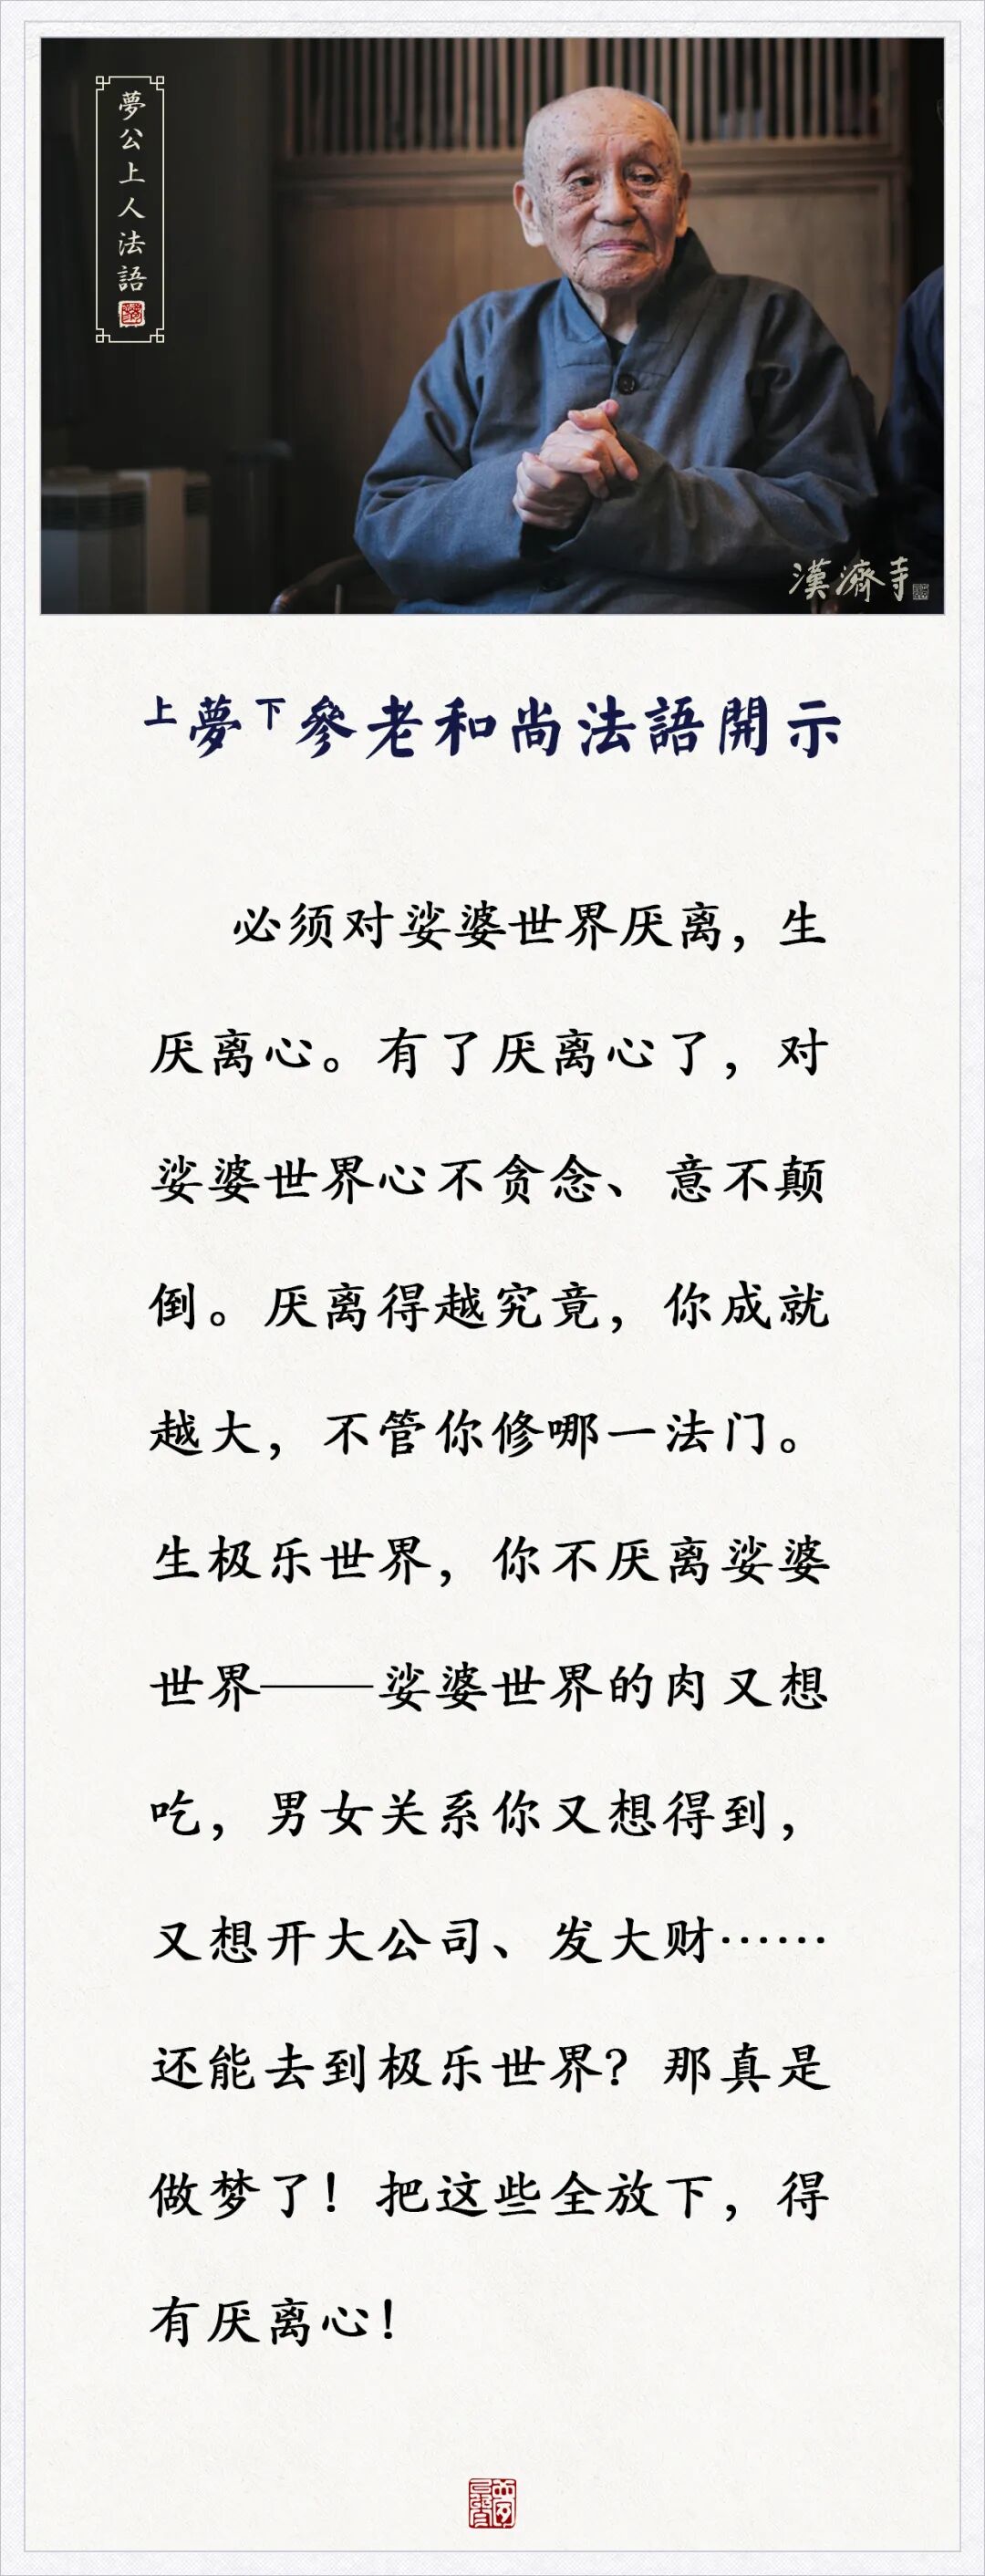 夢公上人法語
漢濟寺
上夢下參老和尚法語開示
必须对娑婆世界厌离，生
厌离心。有了厌离心了，对
娑婆世界心不贪念、意不颠
倒。厌离得越究竟，你成就
越大，不管你修哪一法门。
生极乐世界，你不厌离娑婆
世界——娑婆世界的肉又想
吃，男女关系你又想得到，
又想开大公司、发大财……
还能去到极乐世界？那真是
做梦了！把这些全放下，得
有厌离心！